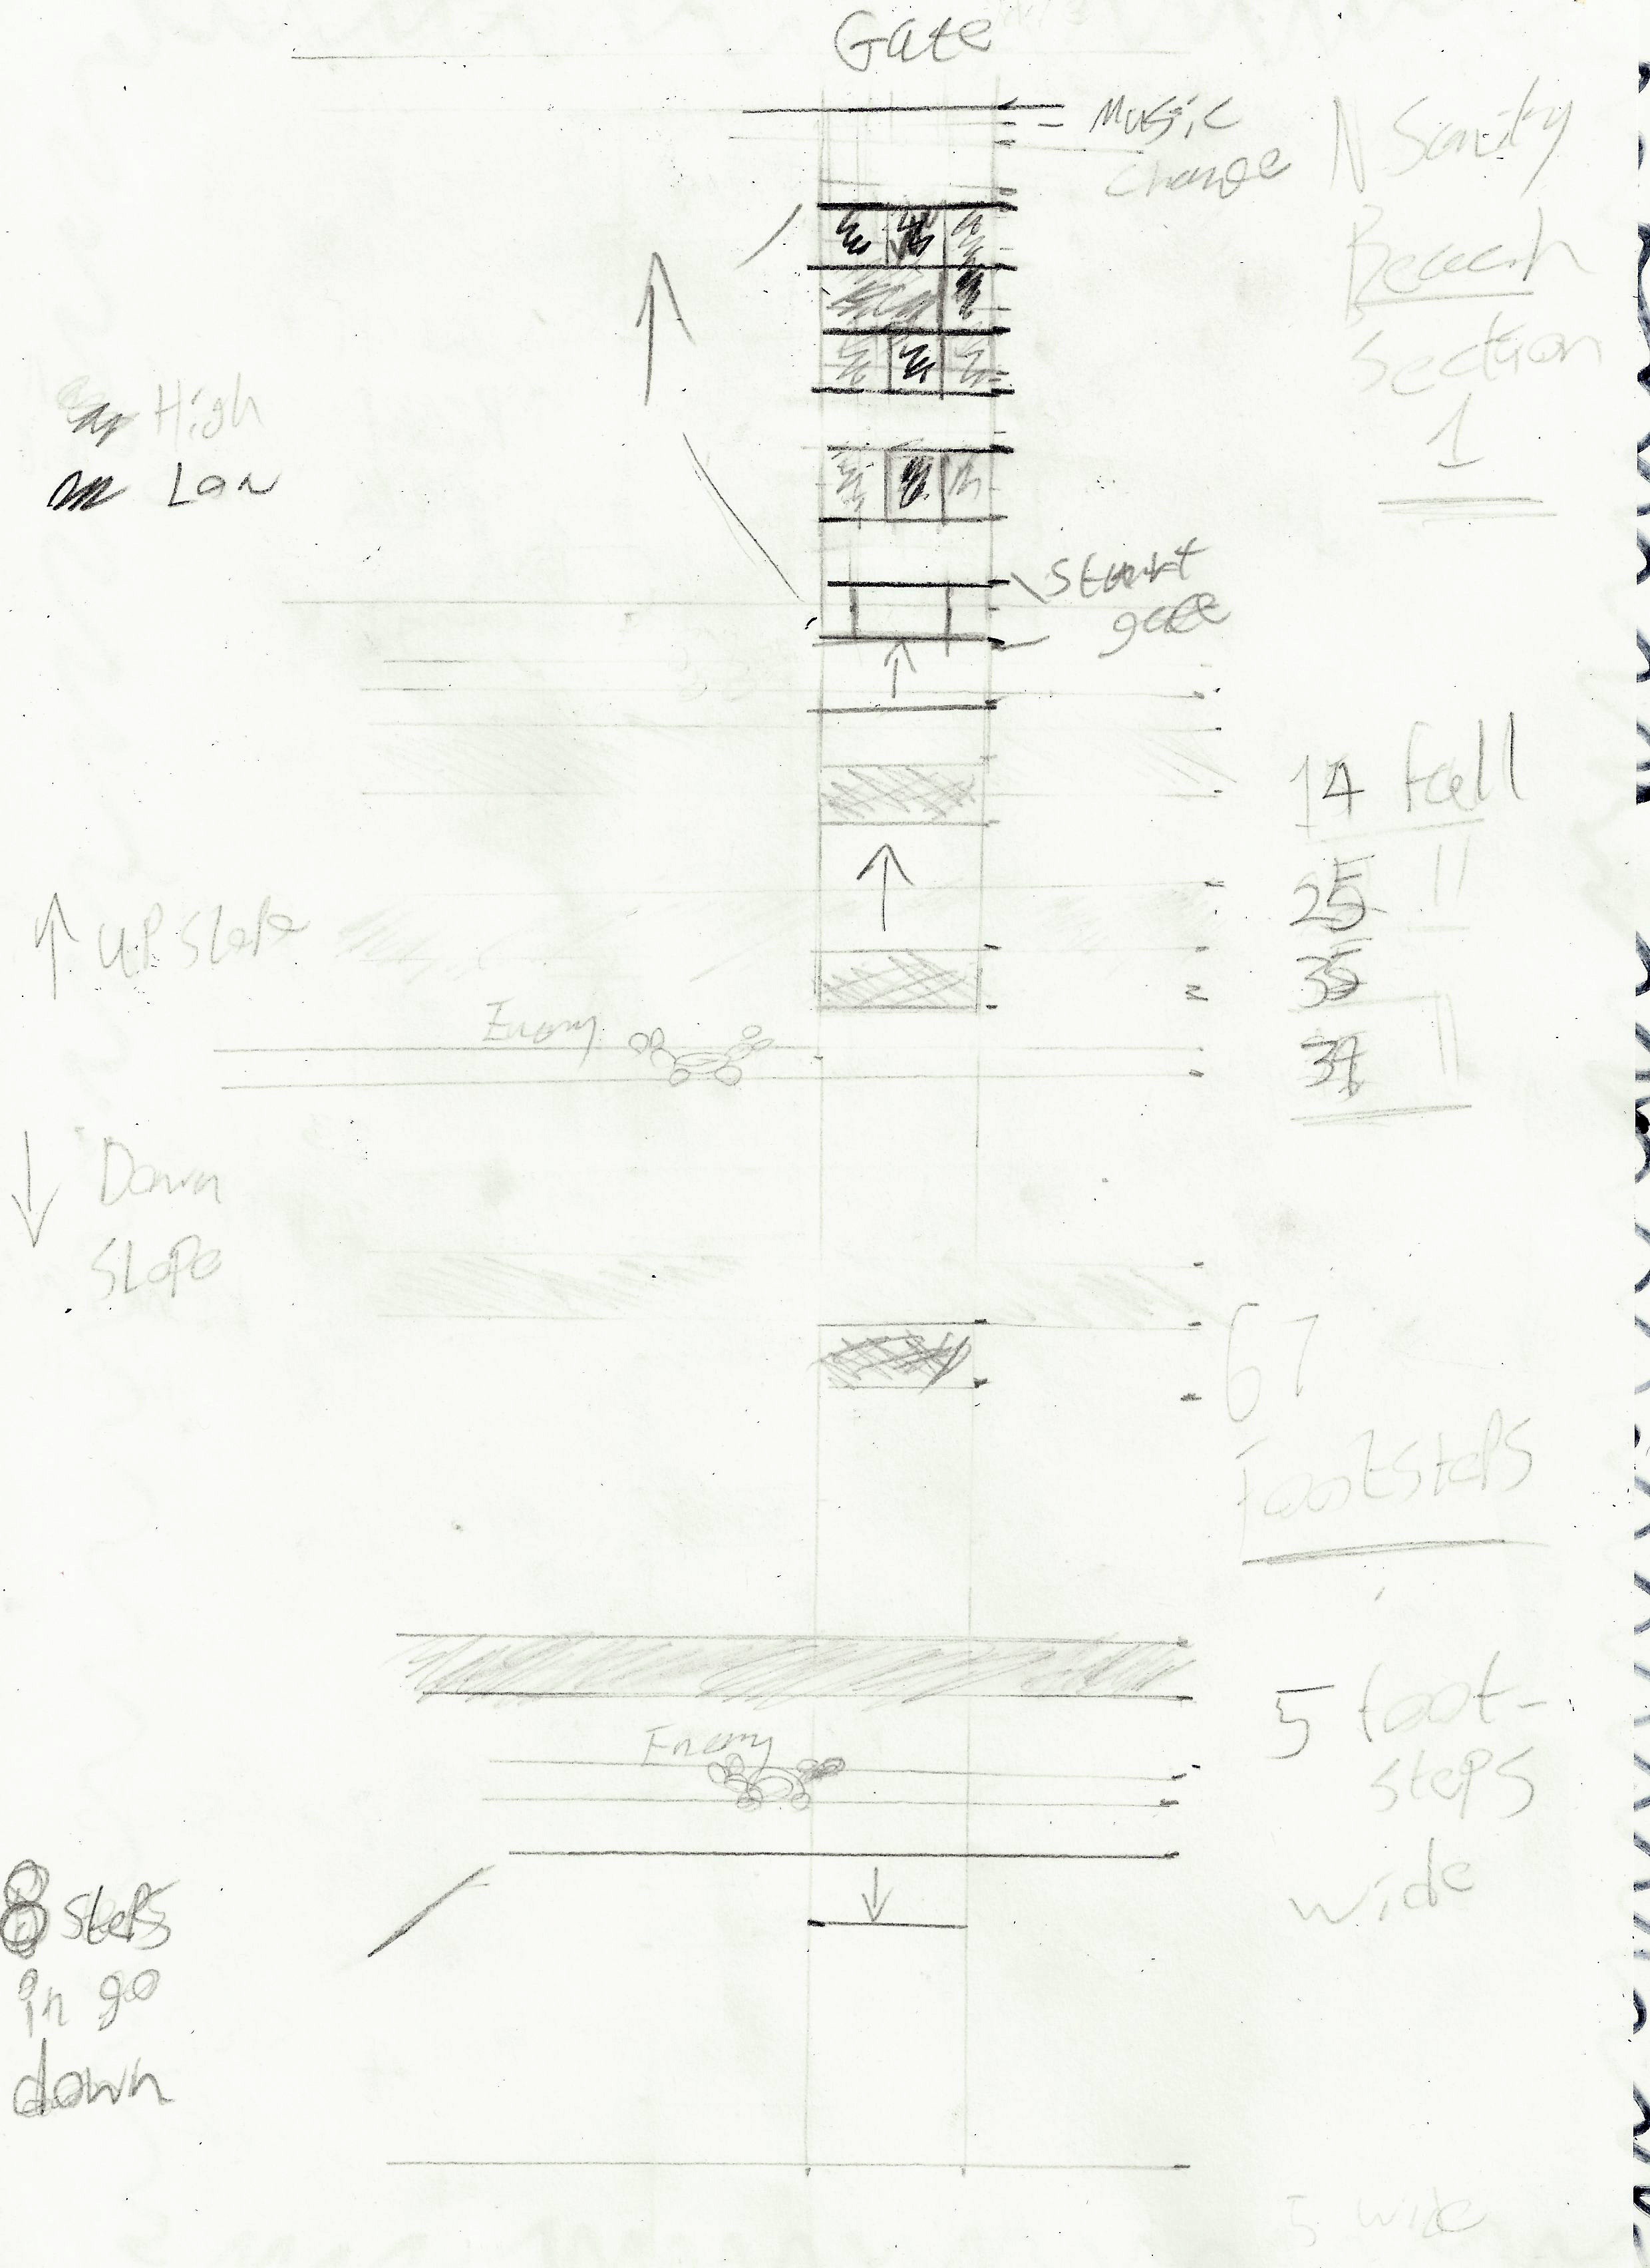 Gate
Music
Change
N Sanity
Beach
Section
1
High
Low
Start
gate
14 fall
25 "
35
37 "
UP Slope
Enemy
Down
Slope
67
Footsteps
Enemy
5 foot-
steps
wide
8 steps
in go
down
5 wide